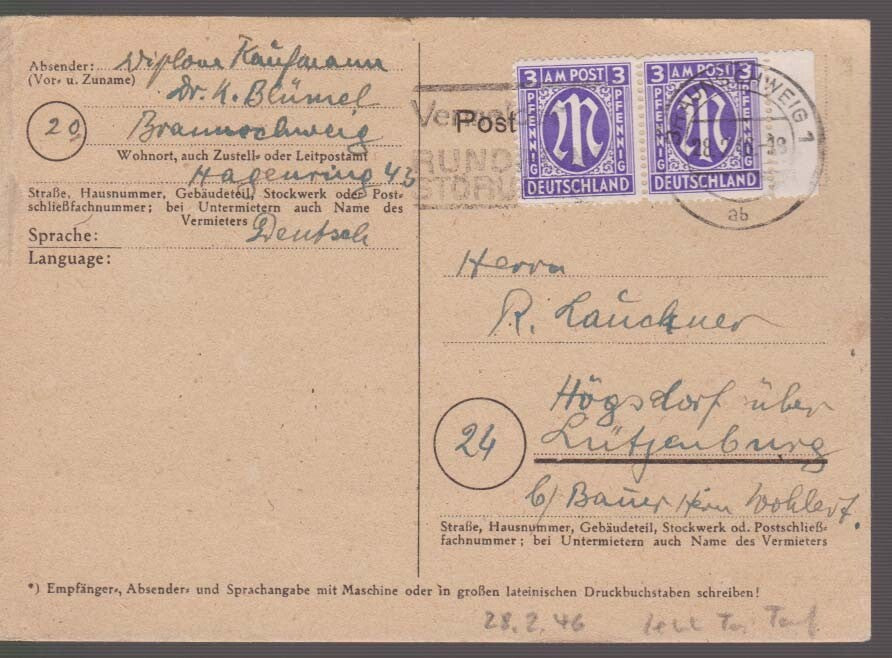 Absender: Diplom Kaufmann
(Vor- u. Zuname)
Dr. K. Blümel
20 Braunschweig
Wohnort, auch Zustell- oder Leitpostamt
Hagenring 43
Straße, Hausnummer, Gebäudeteil, Stockwerk oder Post-
schließfachnummer; bei Untermietern auch Name des
Vermieters
Sprache: Deutsch
Language:
Post
3 AM POST 3
PFENNIG PFENNIG
DEUTSCHLAND
3 AM POST 3
PFENNIG PFENNIG
DEUTSCHLAND
BRAUNSCHWEIG 1
ab
Herrn
R. Lauckner
Högsdorf über
24 Lütjenburg
b/ Bauer Herrn Wohlert.
Straße, Hausnummer, Gebäudeteil, Stockwerk od. Postschließ-
fachnummer; bei Untermietern auch Name des Vermieters
*) Empfänger-, Absender- und Sprachangabe mit Maschine oder in großen lateinischen Druckbuchstaben schreiben!
28.2.46